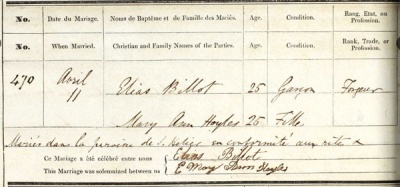 No. Date du Mariage. Noms de Baptême et de Famille des Mariés. Age. Condition. Rang, Etat, ou Profession.
No. When Married. Christian and Family Names of the Parties. Age. Condition. Rank, Trade, or Profession.
470 Avril 11 Elias Billot 25 Garçon Forgeur
Mary Ann Hoyles 25 Fille
Mariés dans la paroisse de St. en conformité aux rites
Ce Mariage a été célébré entre nous Elias Billot
This Marriage was solemnized between us Mary Ann Hoyles